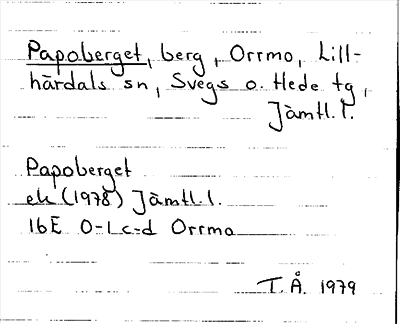 Papoberget, berg, Orrmo, Lill-
härdals sn, Svegs o. Hede tg,
Jämtl. l.
Papoberget
ek (1978) Jämtl. l.
16E 0-1 c-d Orrmo
T. Å. 1979